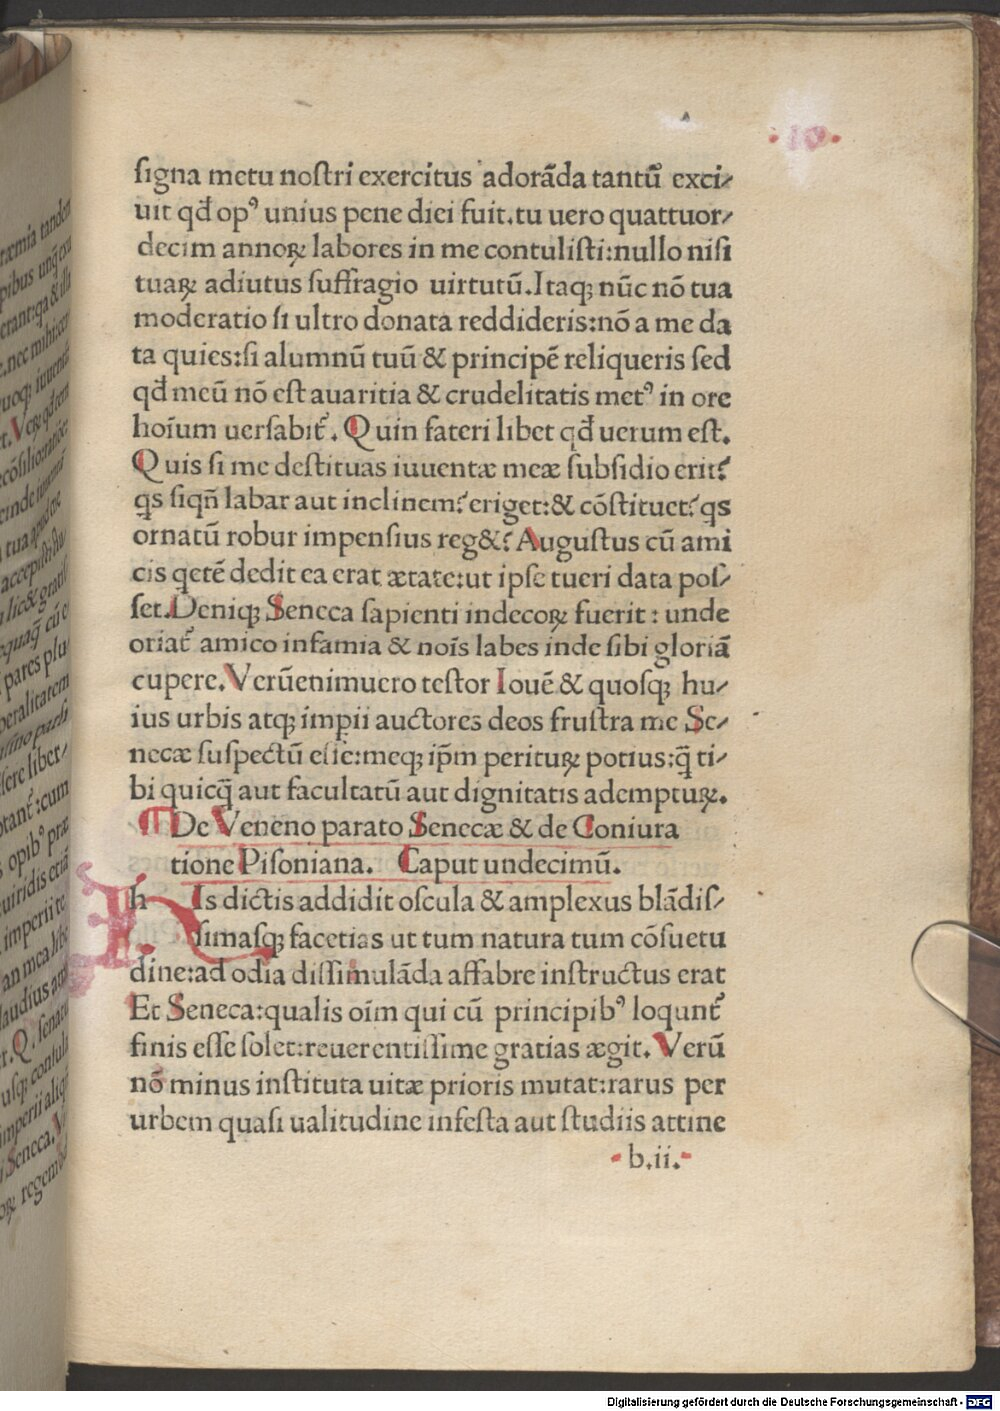 .10.
signa metu nostri exercitus adorāda tantū exci/
uit qđ opꝰ unius pene diei fuit.tu uero quattuor/
decim annoꝝ labores in me contulisti:nullo nisi
tuaꝝ adiutus suffragio uirtutū.Itaqꝫ nūc nō tua
moderatio si ultro donata reddideris:nō a me da
ta quies:si alumnū tuū & principē reliqueris sed
qđ meū nō est auaritia & crudelitatis metꝰ in ore
hoīum uersabit᷑. Quin fateri libet qđ uerum est.
Quis si me destituas iuuentæ meæ subsidio erit?
qs siqñ labar aut inclinem? eriget:& cōstituet? qs
ornatū robur impensius reg&? Augustus cū ami
cis qetē dedit ea erat ætate:ut ipse tueri data pos/
set.Deniqꝫ Seneca sapienti indecoꝝ fuerit : unde
oriat᷑ amico infamia & noīs labes inde sibi gloriā
cupere.Verūenimuero testor Iouē & quosqꝫ hu/
ius urbis atqꝫ imꝑii auctores deos frustra me Se/
necæ suspectū esse:meqꝫ ip̄m perituꝝ potius:q̄ ti/
bi quicq̄ aut facultatū aut dignitatis adempturꝝ.
¶ De Veneno parato Senecæ & de Coniura
tione Pisoniana. Caput undecimū.
hIs dictis addidit oscula & amplexus blādis/
simasqꝫ facetias ut tum natura tum cōsuetu
dine:ad odia dissimulāda affabre instructus erat
Et Seneca:qualis oīm qui cū principibꝰ loqunt᷑
finis esse solet:reuerentissime gratias ægit. Verū
nō minus instituta uitæ prioris mutat:rarus per
urbem quasi ualitudine infesta aut studiis attine
b.ii.
Digitalisierung gefördert durch die Deutsche Forschungsgemeinschaft - DFG